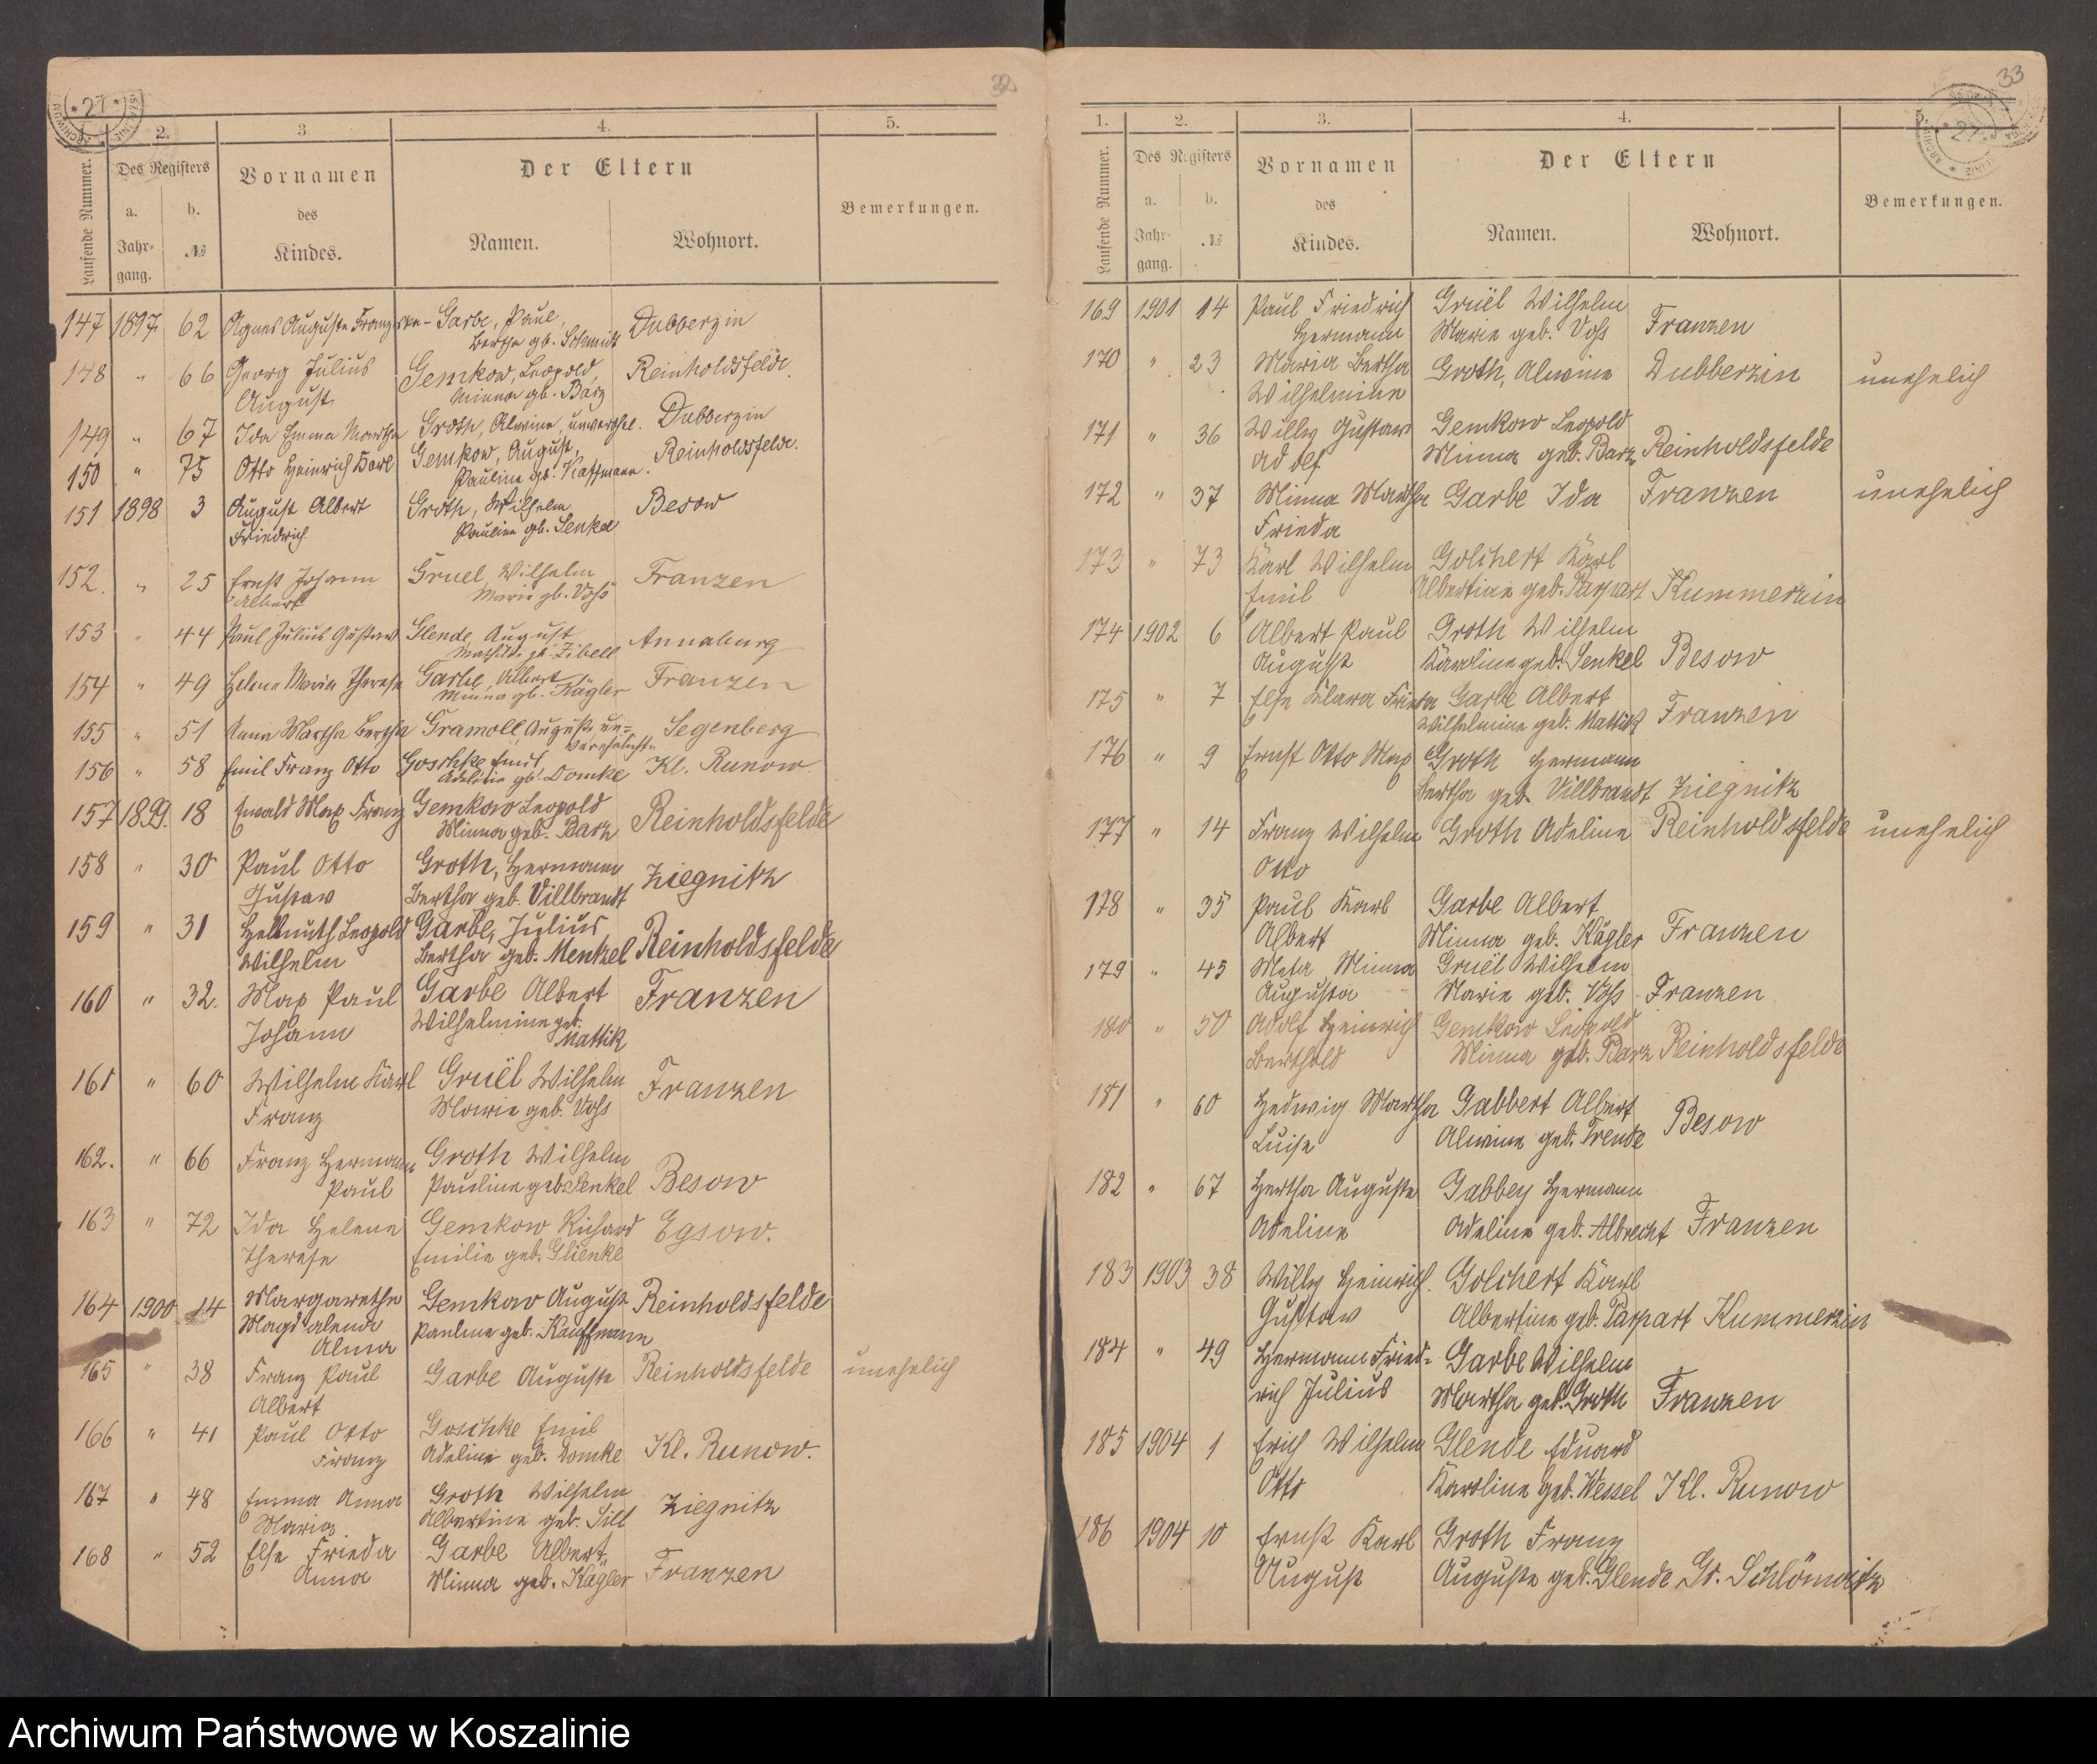 32
* 27 *
1. 2. 3. 4. 5.
Laufende Nummer.
Des Registers
a. Jahrgang.
b. №
Vornamen
des
Kindes.
Der Eltern
Namen. Wohnort.
Bemerkungen.
147 1897 62 Agnes Auguste Franziska Garbe, Paul, Dubberzin
Bertha gb. Schmidt
148 " 66 Georg Julius Gemkow, Leopold, Reinholdsfelde.
August Minna gb. Barz
149 " 67 Ida Emma Martha Groth, Alwine, unverehel. Dubberzin
150 " 75 Otto Heinrich Karl Gemkow, August, Reinholdsfelde.
Pauline gb. Kaffmann.
151 1898 3 August Albert Groth, Wilhelm Besow
Friedrich Pauline gb. Senkel
152. " 25 Ernst Johann Gruel, Wilhelm Franzen
Albert Marie gb. Voß
153 " 44 Paul Julius Gustav Glende, August Annaburg
Mathilde gb. Zibell
154 " 49 Helene Maria Therese Garbe, Albert Franzen
Minna gb. Kägler
155 " 51 Anna Martha Bertha Gramoll, Auguste, un= Segenberg
verehelicht.
156 " 58 Emil Franz Otto Goschke Emil Kl. Runow
Adeline gb. Domke
157 1899. 18 Ewald Max Franz Gemkow Leopold Reinholdsfelde
Minna geb. Barz
158 " 30 Paul Otto Groth, Hermann Ziegnitz
Gustav Bertha geb. Villbrandt
159 " 31 Hellmuth Leopold Garbe, Julius Reinholdsfelde
Wilhelm Bertha geb. Menkel
160 " 32. Max Paul Garbe Albert Franzen
Johann Wilhelmine geb.
Mattik
161 " 60 Wilhelm Karl Gruël Wilhelm Franzen
Franz Marie geb. Voß
162. " 66 Franz Hermann Groth Wilhelm
Paul Pauline geb. Senkel Besow
163 " 72 Ida Helene Gemkow Richard Egsow.
Therese Emilie geb. Glienke
164 1900 14 Margarethe Gemkow August Reinholdsfelde
Magdalena Pauline geb. Kauffmann
Alma
165 " 38 Franz Paul Garbe Auguste Reinholdsfelde unehelich
Albert
166 " 41 Paul Otto Goschke Emil
Franz Adeline geb. Domke Kl. Runow.
167 " 48 Emma Anna Groth Wilhelm Ziegnitz
Maria Albertine geb. Sill
168 " 52 Else Frieda Garbe Albert
Anna Minna geb. Kägler Franzen
33
1. 2. 3. 4. 5.
Laufende Nummer.
Des Registers
a. Jahrgang.
b. №
Vornamen
des
Kindes.
Der Eltern
Namen. Wohnort.
Bemerkungen.
169 1901 14 Paul Friedrich Gruël Wilhelm
Hermann Marie geb. Voß Franzen
170 " 23 Maria Bertha Groth, Alwine Dubberzin unehelich
Wilhelmine
171 " 36 Willy Gustav Gemkow Leopold
Adolf Minna geb. Barz Reinholdsfelde
172 " 37 Minna Martha Garbe Ida Franzen unehelich
Frieda
173 " 73 Karl Wilhelm Golchert Karl
Emil Albertine geb. Parpart Kummerzin
174 1902 6 Albert Paul Groth Wilhelm
August Karoline geb. Senkel Besow
175 " 7 Else Klara Frieda Garbe Albert
Wilhelmine geb. Mattik Franzen
176 " 9 Ernst Otto Max Groth Hermann
Bertha geb. Villbrandt Ziegnitz
177 " 14 Franz Wilhelm Groth Adeline Reinholdsfelde unehelich
Otto
178 " 35 Paul Karl Garbe Albert
Albert Minna geb. Kägler Franzen
179 " 45 Meta Minna Gruël Wilhelm
Augusta Marie geb. Voß Franzen
180 " 50 Adolf Heinrich Gemkow Leopold
Berthold Minna geb. Barz Reinholdsfelde
181 " 60 Hedwig Martha Gabbert Albert
Luise Alwine geb. Trende Besow
182 " 67 Hertha Auguste Gabbey Hermann
Adeline Adeline geb. Albrecht Franzen
183 1903 38 Willy Heinrich Golchert Karl
Gustav Albertine geb. Parpart Kummerzin
184 " 49 Hermann Fried= Garbe Wilhelm
rich Julius Martha geb. Groth Franzen
185 1904 1 Erich Wilhelm Glende Eduard
Otto Karoline geb. Wessel Kl. Runow
186 1904 10 Ernst Karl Groth Franz
August Auguste geb. Glende Gr. Schlönwitz
Archiwum Państwowe w Koszalinie